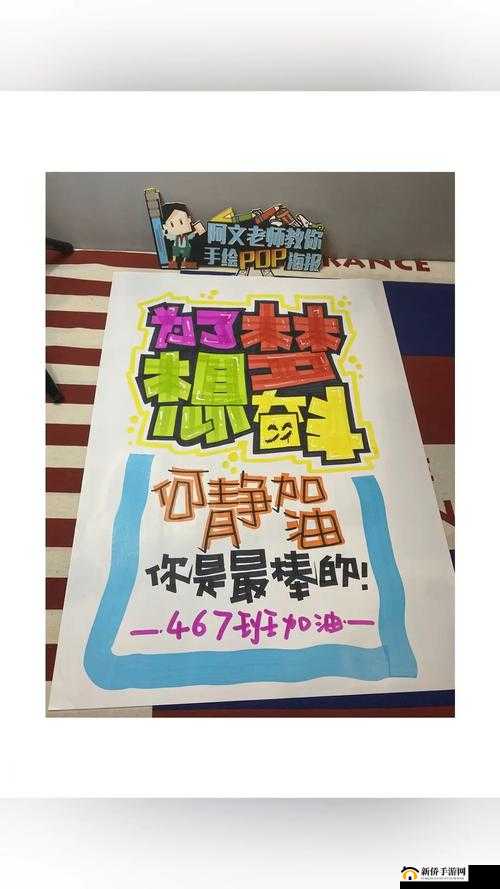 阿文老师教你
手绘POP海报
RANCE
为了梦
想奋斗
何静加油
你是最棒的!
—467班加油—
新侨手游网